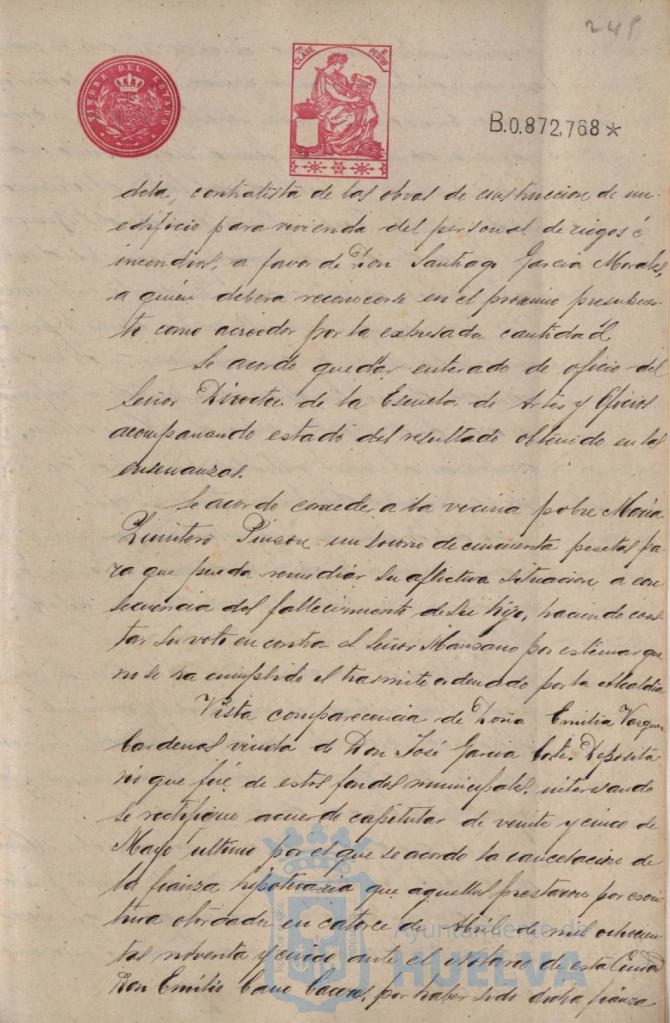 245
TIMBRE DEL ESTADO
CLASE
PESETAS
B.0.872,768*
dola, contratista de las obras de construccion de un
edificio para vivienda del personal de riegos é
incendios, a favor de Don Santiago Garcia Morales,
a quien debera reconocerse en el proximo presupues-
to como acreedor por la expresada cantidad.
Se acordó quedar enterado de oficio del
Señor Director de la Escuela de Artes y Oficios
acompañando estado del resultado obtenido en las
enseñanzas.
Se acordo conceder a la vecina pobre Maria
Quintero Pinzon un socorro de cincuenta pesetas pa
ra que pueda remediar su aflictiva situacion a con
secuencia del fallecimiento de su hijo, haciendo cons
tar su voto en contra el Señor Manzano por estimar que
no se ha cumplido el tramite ordenado por la Alcaldia
Vista comparecencia de Doña Emilia Vazquez
Cardenas viuda de Don José Garcia Deposita
rio que fué de estos fondos municipales, interesando
se rectifique acuerdo capitular de veinte y cinco de
Mayo ultimo por el que se acordo la cancelacion de
la fianza hipotecaria que aquellos prestaron por escri
tura otorgada en catorce de Abril de mil ochocien
tos noventa y cinco ante el Notario de esta Ciudad
Don Emilio Cano Caceres, por haber sido dicha fianza
ayuntamiento de
HUELVA